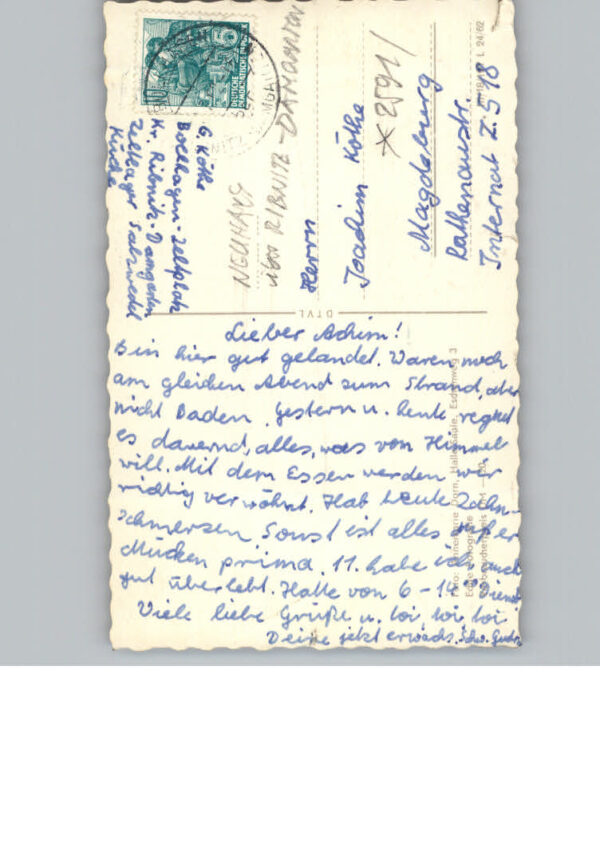 DEUTSCHE
DEMOKRATISCHE REPUBLIK
10
G. Köthe
Bollhagen-Zeltplatz
Kr. Ribnitz-Damgarten
Zeltlager Salzwedel
Küche
NEUHAUS
über RIBNITZ-DAMGARTEN
Herrn
Joachim Köthe
*2591/
Magdeburg
Rathenaustr.
Internat Z.518
L 24/62
DTVL
Lieber Achim!
Bin hier gut gelandet. Waren noch
am gleichen Abend zum Strand, aber
nicht Baden. Gestern u. heute regnet
es dauernd, alles, was vom Himmel
will. Mit dem Essen werden wir
richtig verwöhnt. Hab heute Zahn-
schmerzen. Sonst ist alles außer
Mücken prima. 11. habe ich auch
gut überlebt. Hatte von 6-14 Dienst
Viele liebe Grüße u. toi, toi, toi
Deine jetzt erwachs. Schw.
Foto: Dorn, Halle/Saale, 3